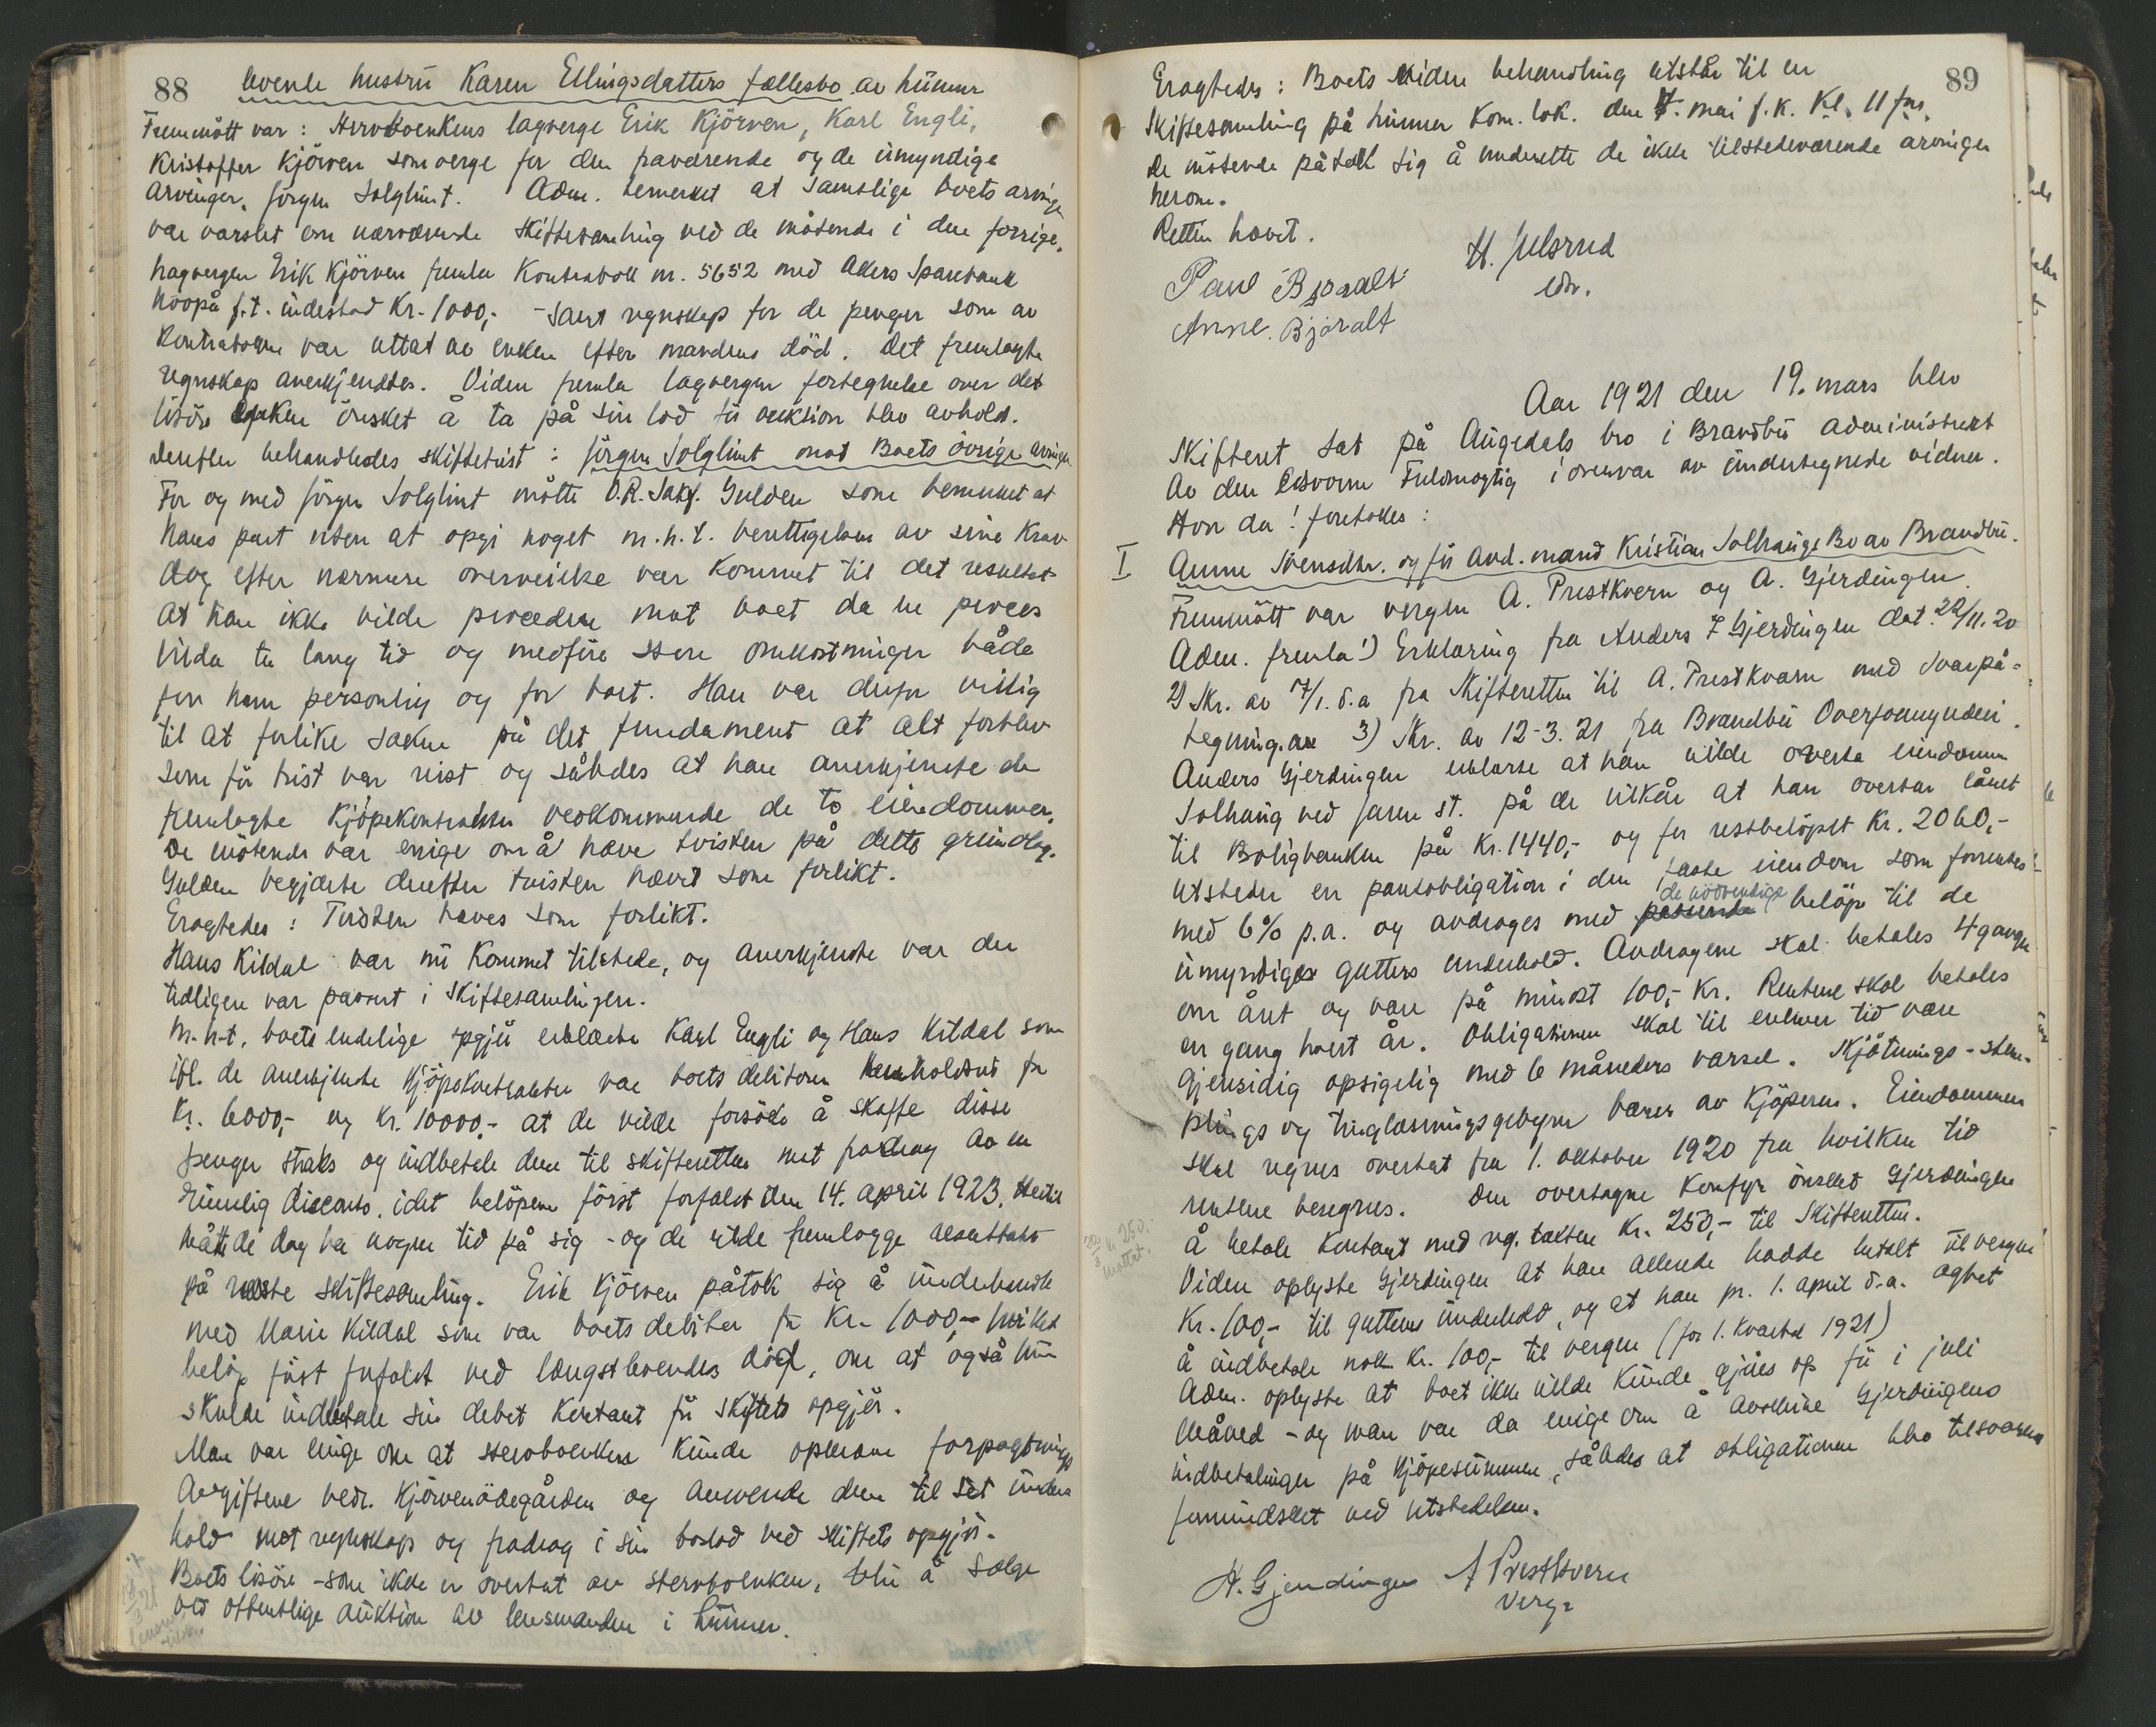 88
levende hustru Karen Ellingsdatters fællesbo av Lunner
Fremmött var: Stervboenkens lagverge Erik Kjörven, Karl Engli,
Kristoffer Kjörven som verge for den fraværende og de umyndige
arvinger, Jörgen Solglimt. Adm. bemerket at samtlige boets arvinger
var varslet om nærværende skiftesamling ved de mötende i den forrige.
Lagvergen Erik Kjörven fremla Kontrabok nr. 5652 med Akers Sparebank
hvorpå f.t. indestod Kr. 1000,- samt regnskap for de penger som av
Kontraboken var uttat av enken efter mandens död. Det fremlagte
regnskap anerkjendtes. Viden fremla lagvergen fortegnelse over det
lösöre enken önsket å ta på sin lod før auktion blev avholdt.
Derefter behandledes skiftetvist: Jörgen Solglimt mot Boets övrige arvinger.
For og med Jörgen Solglimt mötte O.R.Sakf. Gulden som bemerket at
hans part uten at opgi noget m.h.t. berettigelsen av sine krav
dog efter nærmere overveielse var kommet til det resultat
at han ikke vilde procedere mot boet da en proces
vilde ta lang tid og medföre store omkostninger både
for ham personlig og for boet. Han var derfor villig
til at forlike saken på det fundament at alt forblev
som för tvist var reist og således at han anerkjendte de
fremlagte Kjöpekontrakter vedkommende de to eiendommer.
De mötende var enige om å hæve tvisten på dette grundlag.
Gulden begjærte derefter tvisten hævet som forlikt.
Eragtedes: Tvisten hæves som forlikt.
Hans Kildal var nu kommet tilstede, og anerkjendte var der
tidligere var passert i skiftesamlingen.
M.h.t. boets endelige opgjör erklærte Karl Engli og Hans Kildal som
ifl. de anerkjendte Kjöpekontrakter var boets debitorer henholdsvis for
Kr. 6000,- og Kr. 10000,- at de vilde forsöke å skaffe disse
penger straks og indbetale dem til skifteretten mot fradrag av en
rimelig disconto, idet belöpene först forfaldt den 14. april 1923. Hertil
måtte de dog ha nogen tid på sig - og de vilde fremlægge resultatet
på næste skiftesamling. Erik Kjörven påtok sig å underhandle
med Marie Kildal som var boets debitor for Kr. 1000,- hvilket
belöp först forfaldt ved længstlevendes död, om at også hun
skulde indbetale sin debet kontant för skiftets opgjör.
Man var enige om at stervboenken kunde opkræve forpagtnings
avgiftene vedr. Kjörvenödegården og anvende dem til sit under
hold mot regnskap og fradrag i sin boslod ved skiftets opgjör.
Boets lösöre - som ikke er overtat av stervboenken, blir å sælge
ved offentlige auktion av lensmanden i Lunner.
89
Eragtedes: Boets viden behandling utstår til en
skiftesamling på Lunner Kom. lok. den 7. mai f.k. Kl. 11 fm.
De mötende påtok sig å underrette de ikke tilstedeværende arvinger
herom.
Retten hævet.
H. Julsrud
edsv.
Paul Björalt
Anne Björalt
Aar 1921 den 19. mars blev
Skifteret sat på Augedals bro i Brandbu administrert
av den edsvorne Fuldmægtig i overvær av undertegnede vidner.
Hvor da! foretokes:
I Anne Svensdtr. og för avd. mand Kristian Solhaugs Bo av Brandbu.
Fremmött var vergen A. Prestkvern og A. Gjerdingen
Adm. fremla 1) Erklæring fra Anders F Gjerdingen dat. 22/11. 20
2) Skr. av 7/1. d.a fra Skifteretten til A. Prestkvern med svarpå-
tegning. 3) Skr. av 12-3. 21 fra Brandbu Overformynderi.
Anders Gjerdingen erklærte at han vilde overta eiendommen
Solhaug ved Jaren st. på de vilkår at han overtar lånet
til Boligbanken på Kr. 1440,- og for restbelöpet Kr. 2060,-
utsteder en pantobligation i den faste eiendom som forrentes
med 6% p.a. og avdrages med de nödvendige belöp til de
umyndige gutters underhold. Avdragene skal betales 4 ganger
om året og være på minst 100,- Kr. Rentene skal betales
en gang hvert år. Obligationen skal til enhver tid være
gjensidig opsigelig med 6 måneders varsel. Skjötnings - stem-
plings og tinglæsningsgebyrer bæres av Kjöperen. Eiendommen
skal regnes overtat fra 1. oktober 1920 fra hvilken tid
rentene beregnes. Den overtagne Komfyr önsket Gjerdingen
å betale kontant med vg. taksten Kr. 250,- til Skifteretten.
Viden oplyste Gjerdingen at han allerede hadde betalt til vergen
Kr. 100,- til guttens underhold, og at han pr. 1. april d.a. agtet
å indbetale nok Kr. 100,- til vergen (for 1. kvartal 1921)
Adm. oplyste at boet ikke vilde kunde gjöres op för i juli
måned - og man var da enige om å avskrive Gjerdingens
indbetalinger på Kjöpesummen, således at obligationen blev tilsvarende
formindsket ved utstedelsen.
Kr 250,-
mottat.
A. Gjerdingen A Prestkvern
Verge